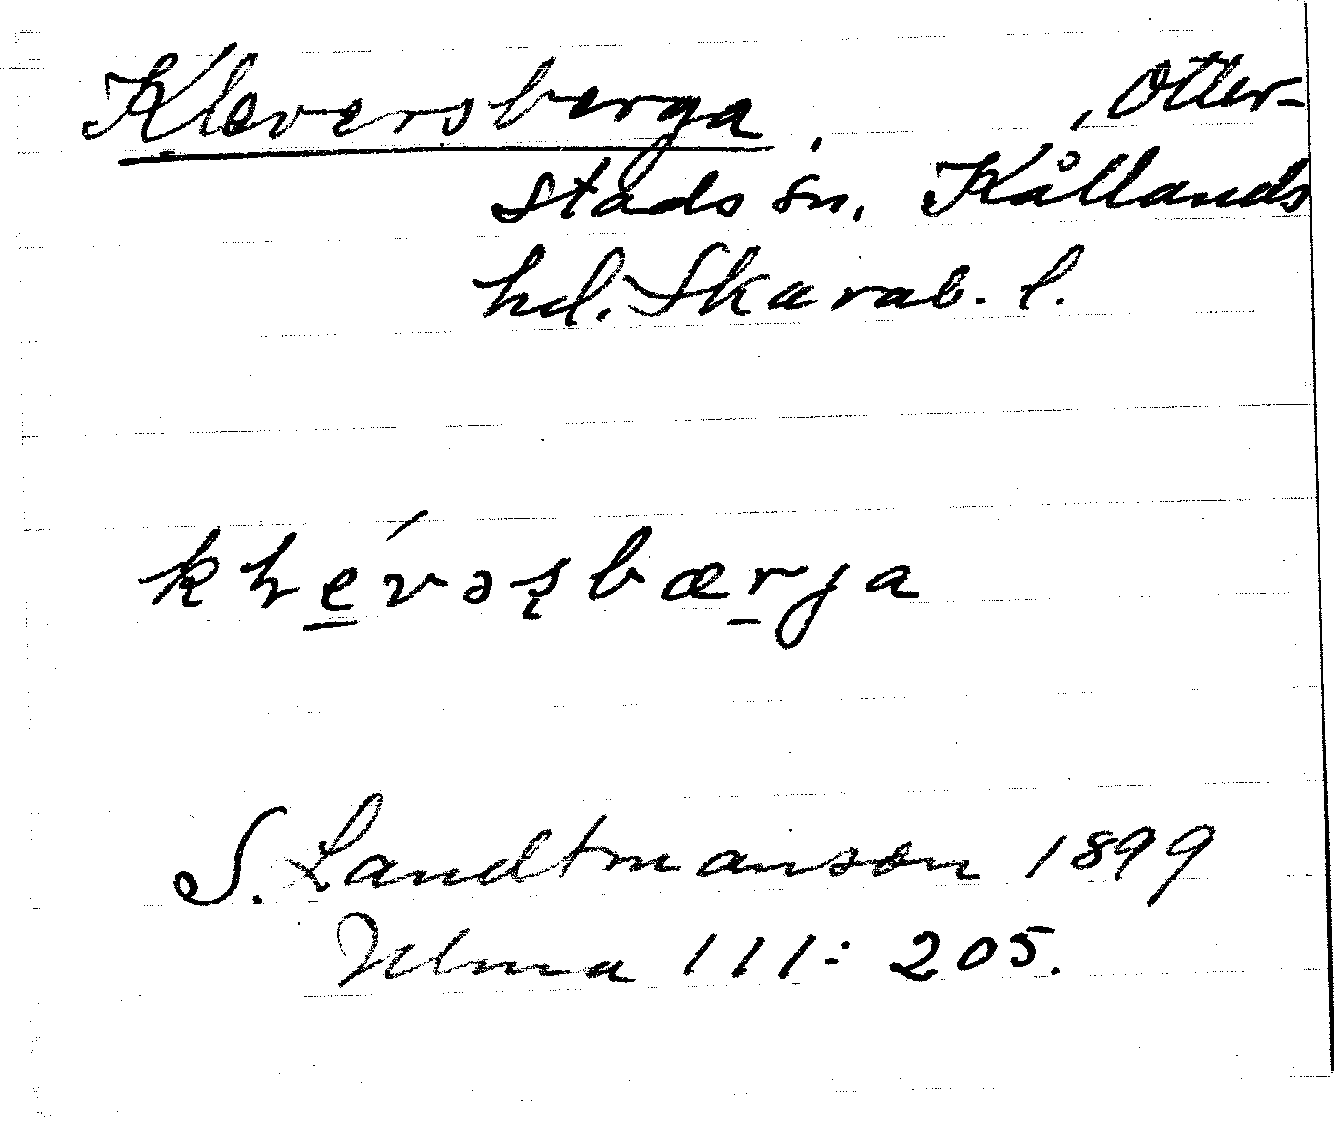 Kleversberga, , Otter-
stads sn, Kållands
hd. Skarab. l.
kһé̲vəʂbær̲ja
S. Landtmanson 1899
Ulma 111: 205.